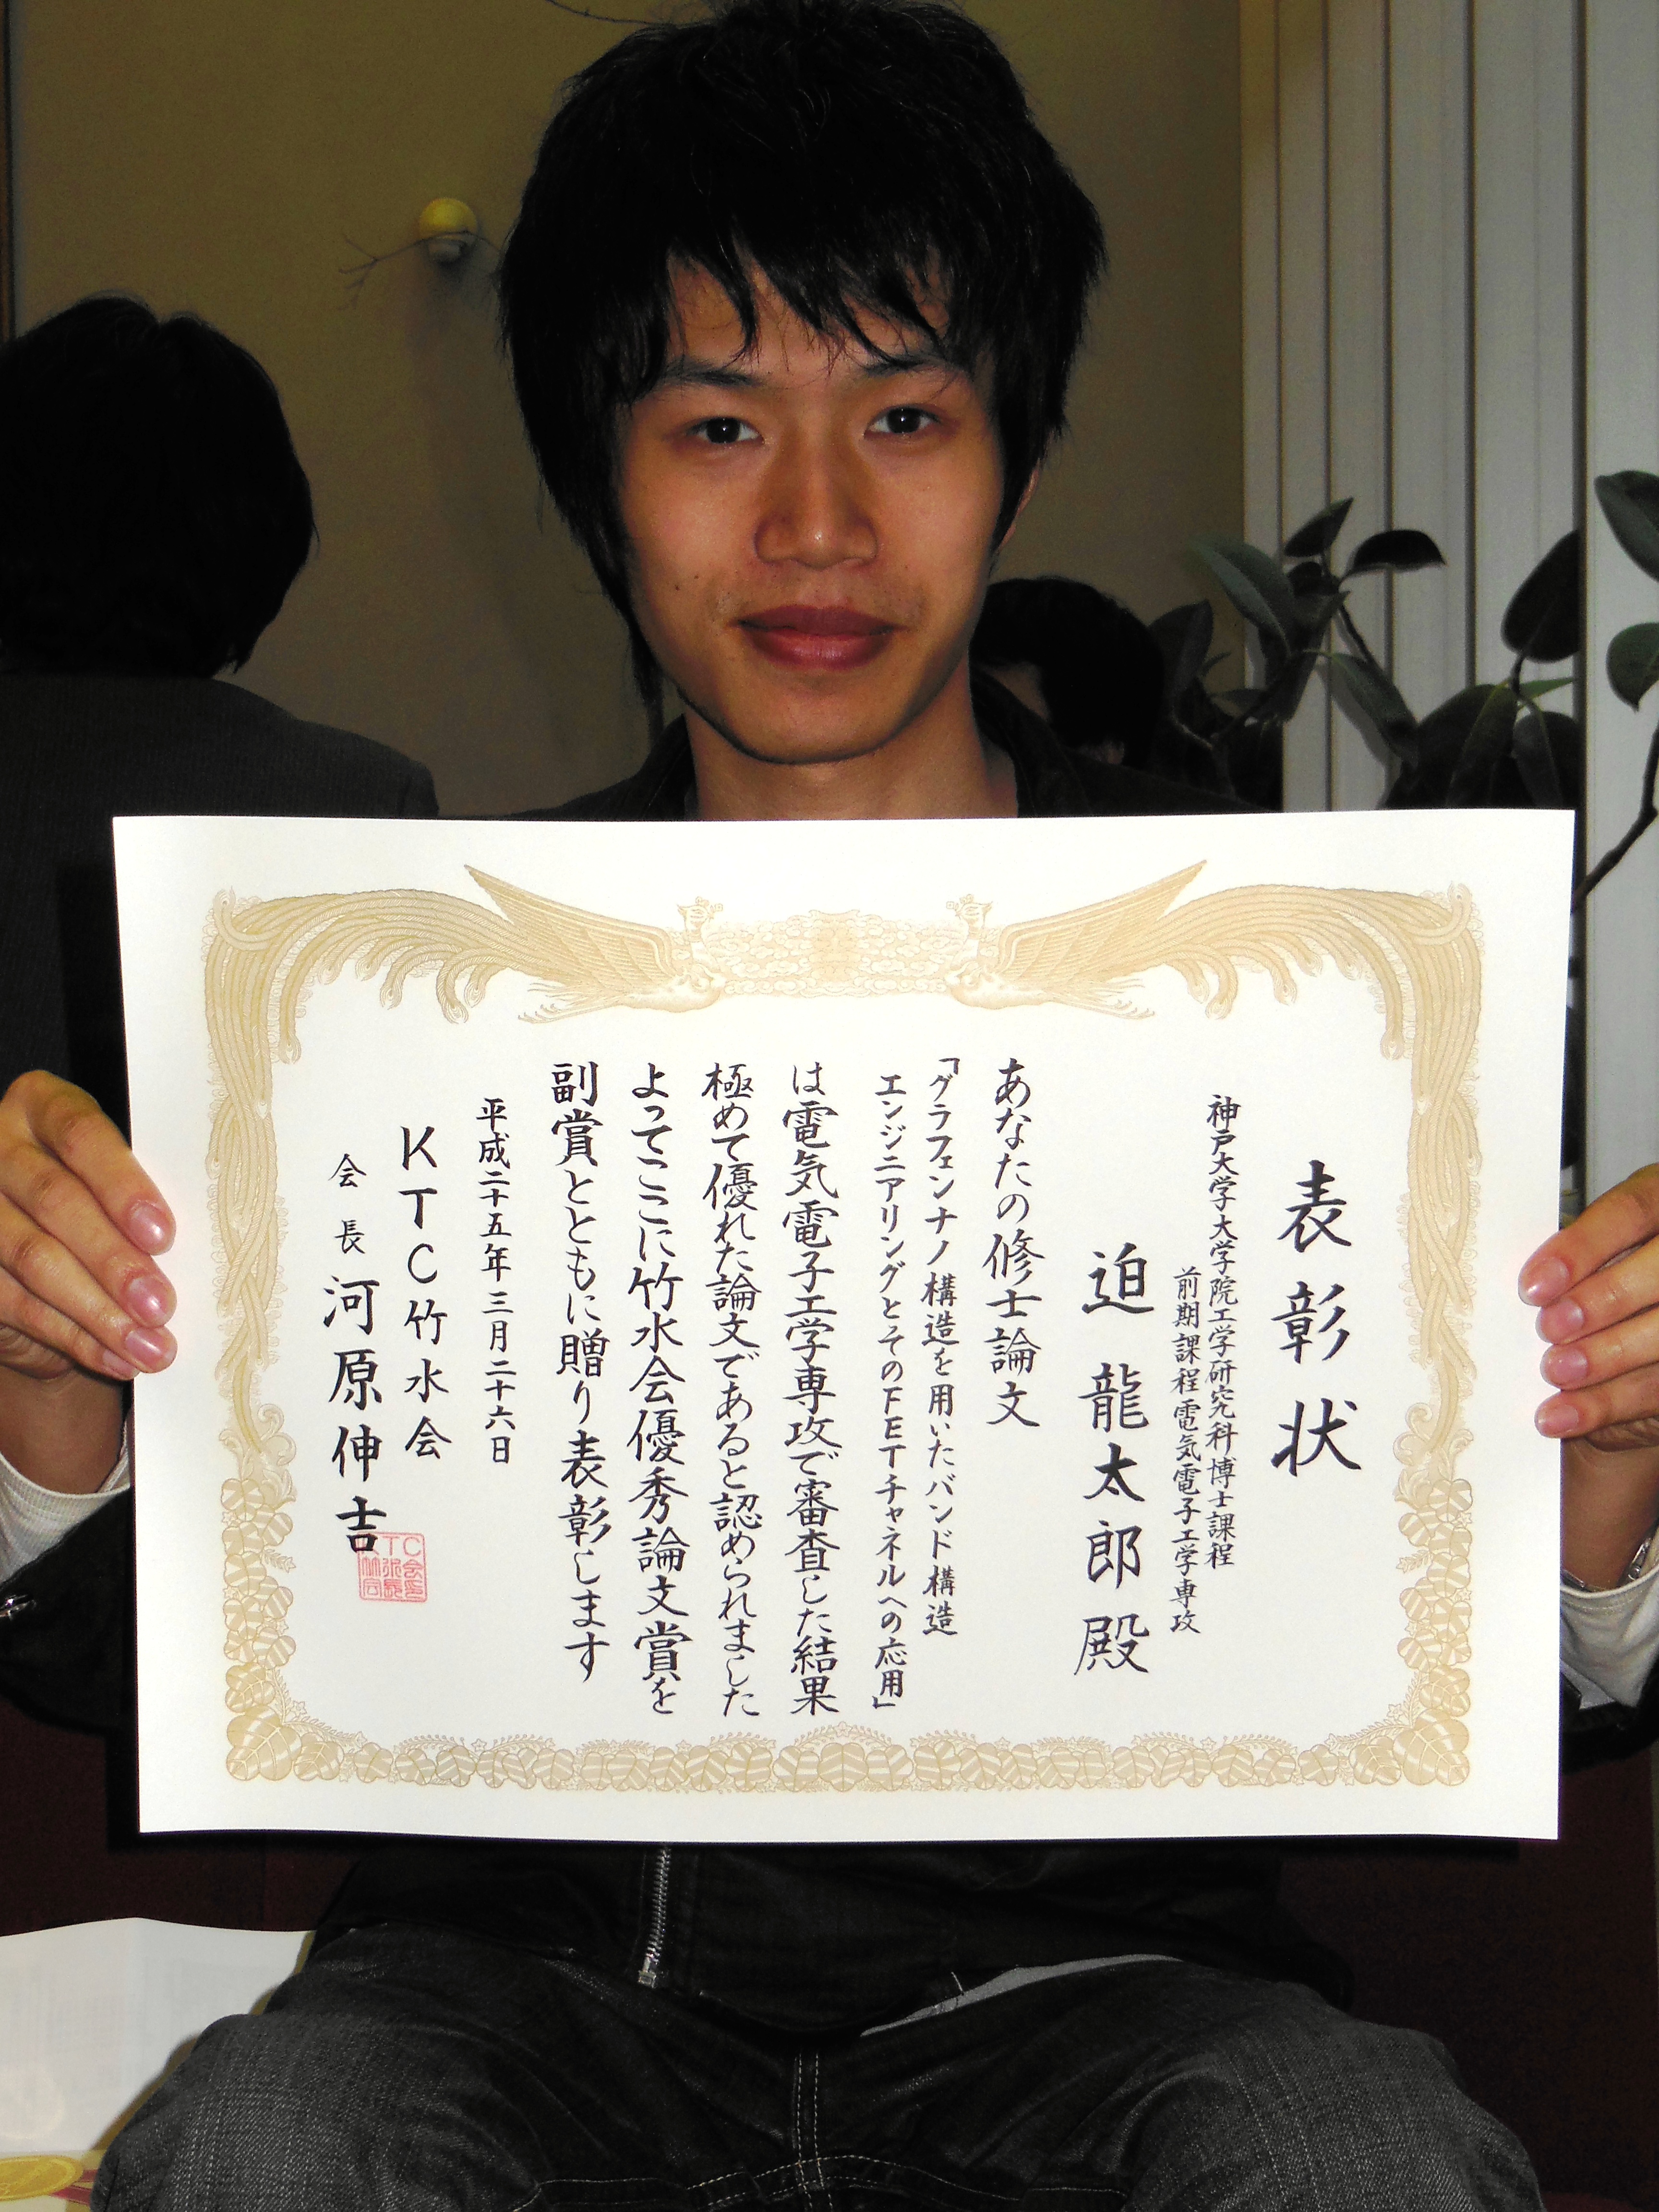 表彰状
神戸大学大学院工学研究科博士課程
前期課程電気電子工学専攻
迫 龍太郎 殿
あなたの修士論文
「グラフェンナノ構造を用いたバンド構造
エンジニアリングとそのFETチャネルへの応用」
は電気電子工学専攻で審査した結果
極めて優れた論文であると認められました
よってここに竹水会優秀論文賞を
副賞とともに贈り表彰します
平成二十五年三月二十六日
KTC竹水会
会長 河原伸吉